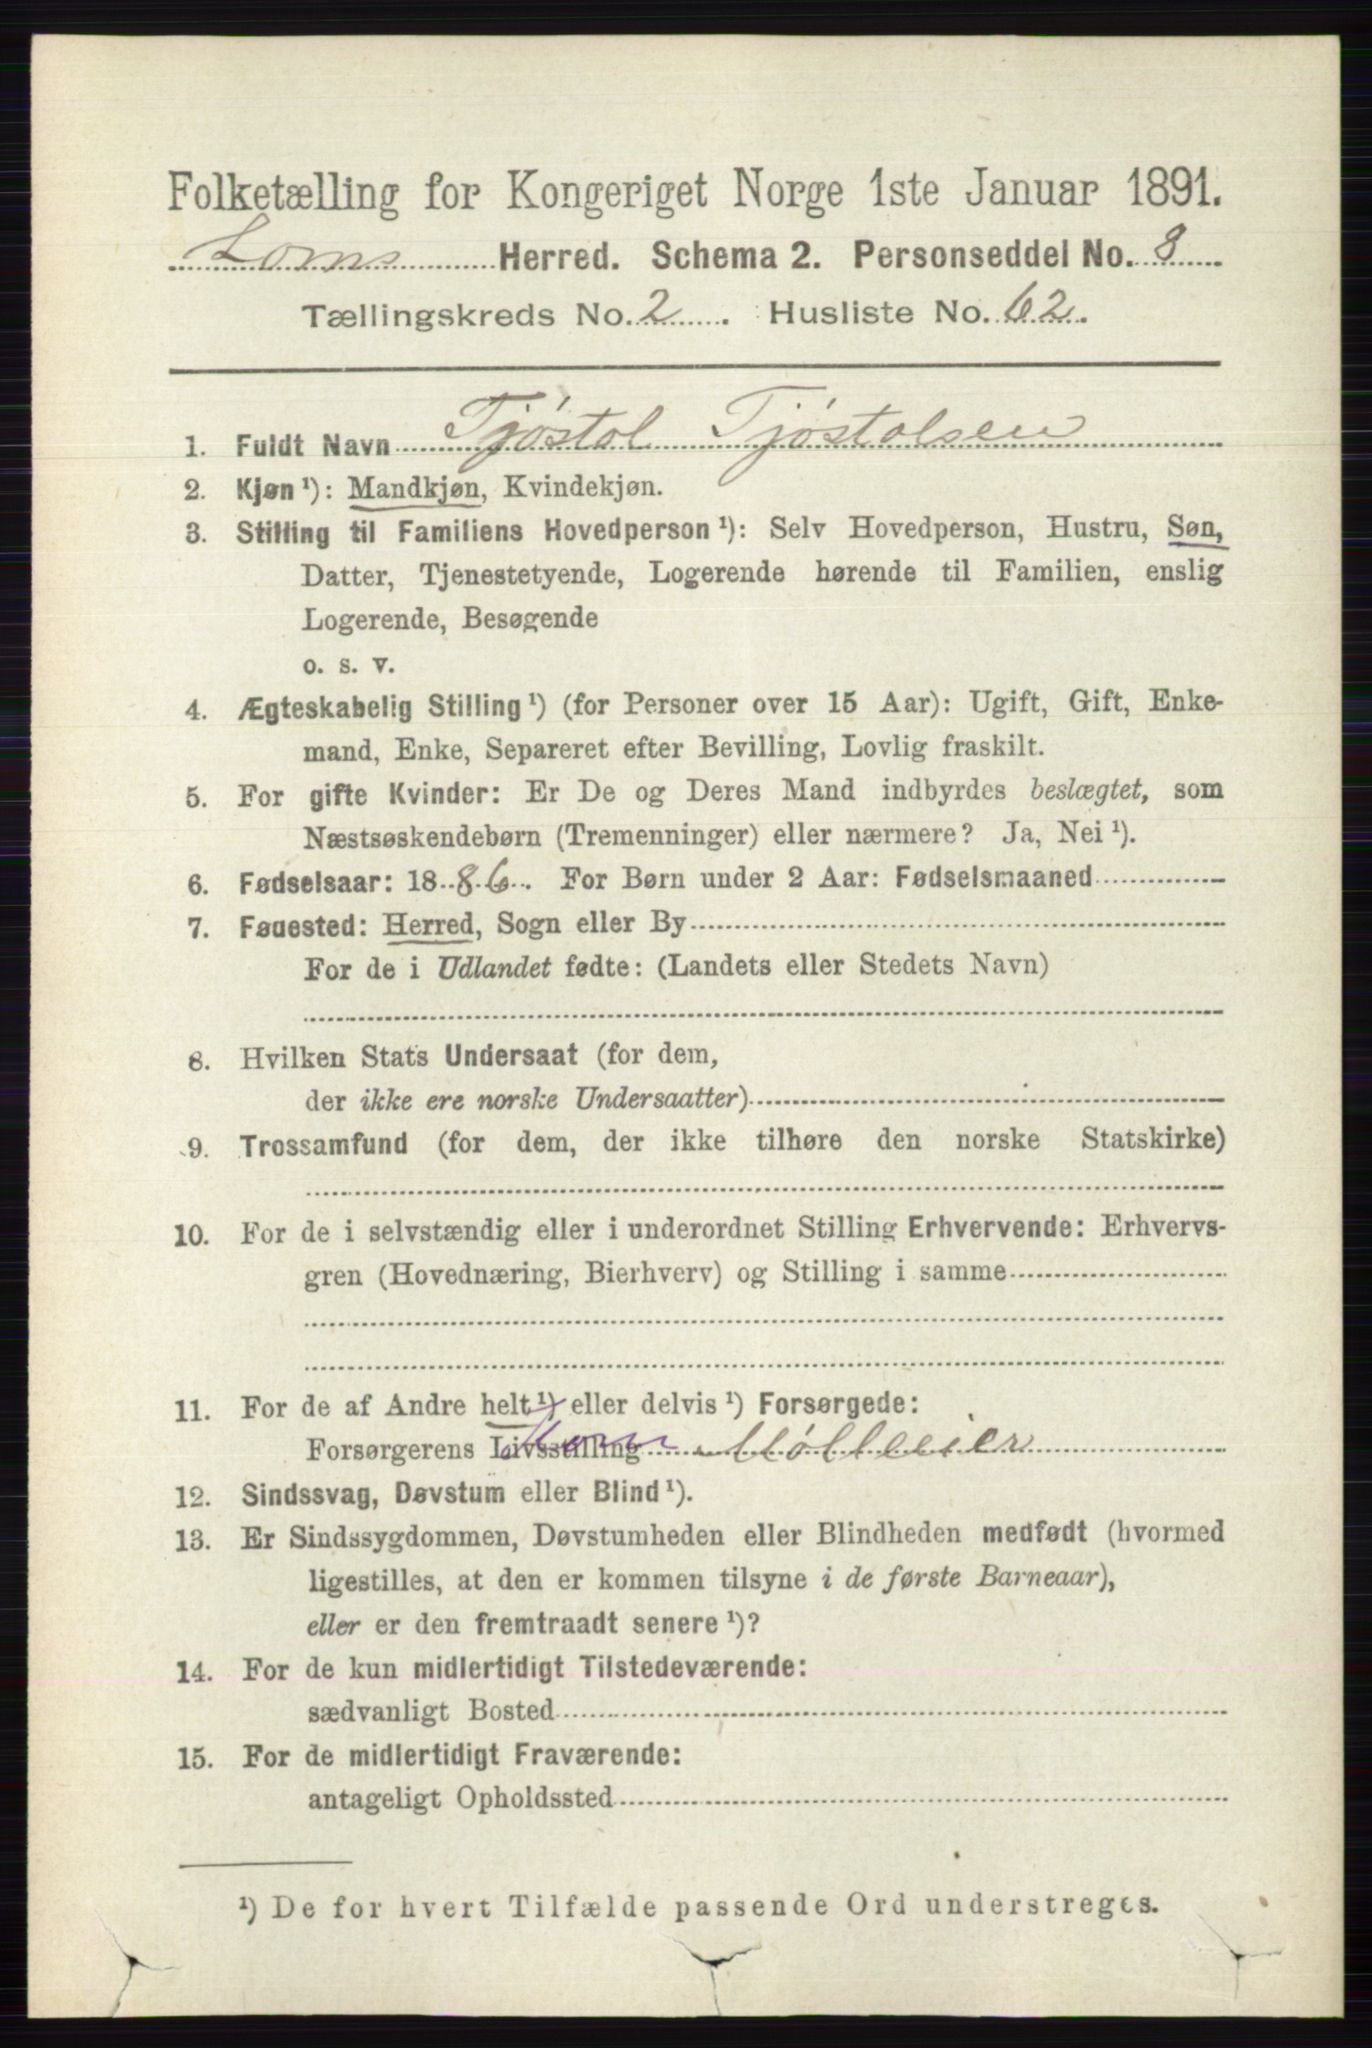 Folketælling for Kongeriget Norge 1ste Januar 1891.
Loms Herred. Schema 2. Personseddel No. 8
Tællingskreds No. 2. Husliste No. 62.
1. Fuldt Navn Tjøstol Tjøstolsen
2. Kjøn ¹): Mandkjøn, Kvindekjøn.
3. Stilling til Familiens Hovedperson ¹): Selv Hovedperson, Hustru, Søn,
Datter, Tjenestetyende, Logerende hørende til Familien, enslig
Logerende, Besøgende
o. s. v.
4. Ægteskabelig Stilling ¹) (for Personer over 15 Aar): Ugift, Gift, Enke-
mand, Enke, Separeret efter Bevilling, Lovlig fraskilt.
5. For gifte Kvinder: Er De og Deres Mand indbyrdes beslægtet, som
Næstsøskendebørn (Tremenninger) eller nærmere? Ja, Nei ¹).
6. Fødselsaar: 1886. For Børn under 2 Aar: Fødselsmaaned
7. Føuested: Herred, Sogn eller By
For de i Udlandet fødte: (Landets eller Stedets Navn)
8. Hvilken Stats Undersaat (for dem,
der ikke ere norske Undersaatter)
9. Trossamfund (for dem, der ikke tilhøre den norske Statskirke)
10. For de i selvstændig eller i underordnet Stilling Erhvervende: Erhvervs-
gren (Hovednæring, Bierhverv) og Stilling i samme
11. For de af Andre helt ¹) eller delvis ¹) Forsørgede:
Forsørgerens Livsstilling Korn Mølleeier
12. Sindssvag, Døvstum eller Blind ¹).
13. Er Sindssygdommen, Døvstumheden eller Blindheden medfødt (hvormed
ligestilles, at den er kommen tilsyne i de første Barneaar),
eller er den fremtraadt senere ¹)?
14. For de kun midlertidigt Tilstedeværende:
sædvanligt Bosted
15. For de midlertidigt Fraværende:
antageligt Opholdssted
¹) De for hvert Tilfælde passende Ord understreges.